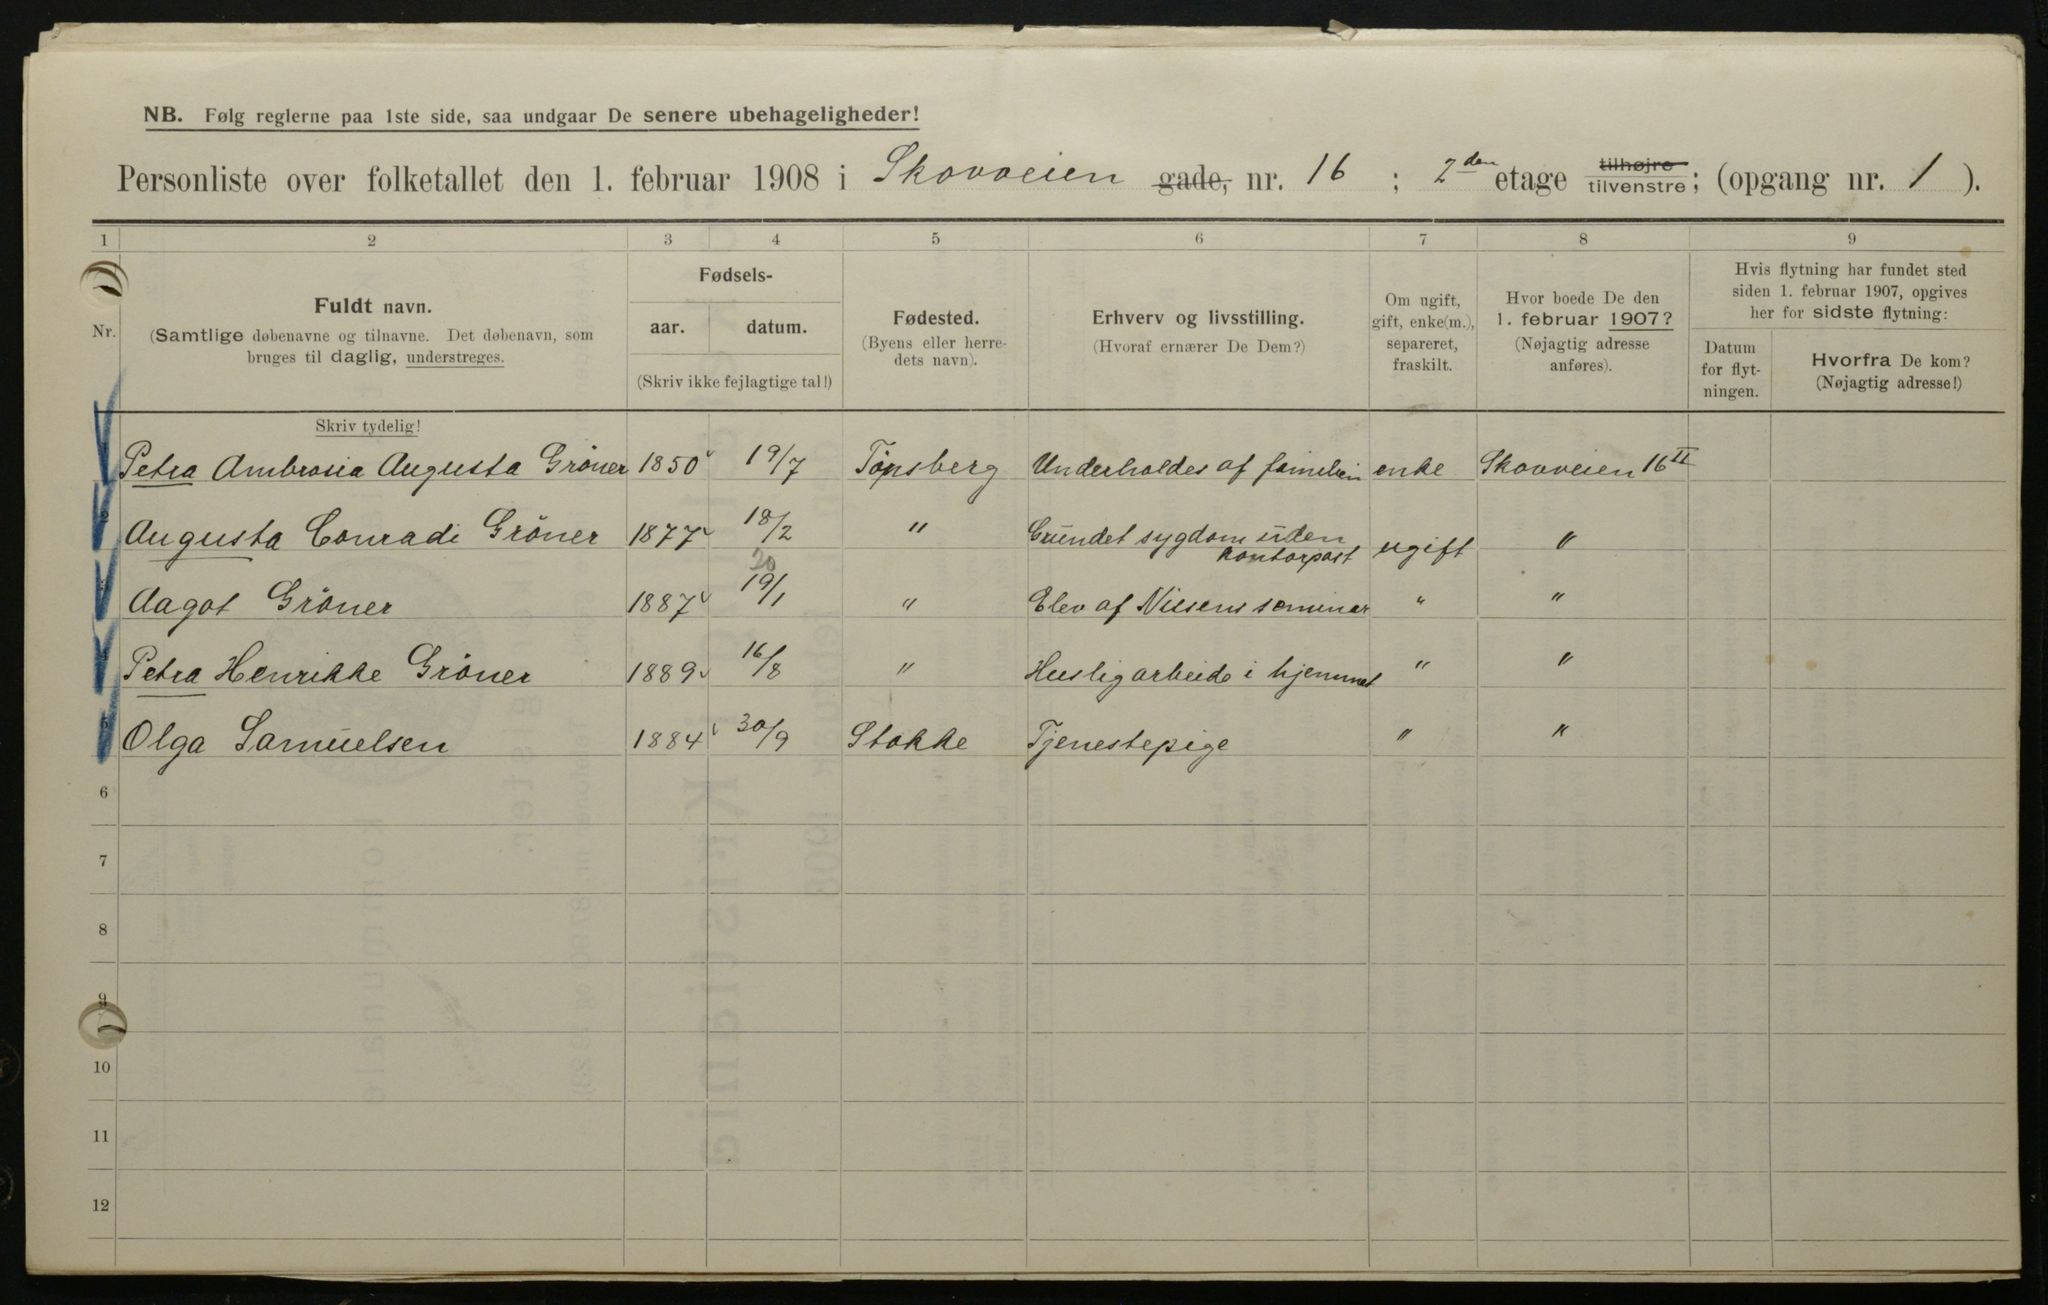 NB. Følg reglerne paa 1ste side, saa undgaar De senere ubehageligheder!
Personliste over folketallet den 1. februar 1908 i Skovveien gade, nr. 16 ; 2den etage tilhøjre tilvenstre; (opgang nr. 1 ).
1 2 3 4 5 6 7 8 9
Nr.
Fuldt navn.
(Samtlige døbenavne og tilnavne. Det døbenavn, som
bruges til daglig, understreges.
Fødsels-
aar. datum.
(Skriv ikke fejlagtige tal!)
Fødested.
(Byens eller herre-
dets navn).
Erhverv og livsstilling.
(Hvoraf ernærer De Dem?)
Om ugift,
gift, enke(m.),
separeret,
fraskilt.
Hvor boede De den
1. februar 1907?
(Nøjagtig adresse
anføres).
Hvis flytning har fundet sted
siden 1. februar 1907, opgives
her for sidste flytning:
Datum
for flyt-
ningen.
Hvorfra De kom?
(Nøjagtig adresse!)
Skriv tydelig!
Petra Ambrosia Augusta Gröner 1850 19/7 Tönsberg Underholdes af familien enke Skovveien 16 II
2 Augusta Conradi Gröner 1877 18/2 " Grundet sygdom uden
kontorpost ugift "
20
Aagot Gröner 1887 19/1 " Elev af Nissens seminar " "
Petra Henrikke Gröner 1889 16/8 " Huslig arbeide i hjemmet " "
5 Olga Samuelsen 1884 30/9 Stokke Tjenestepige " "
6
7
8
9
10
11
12